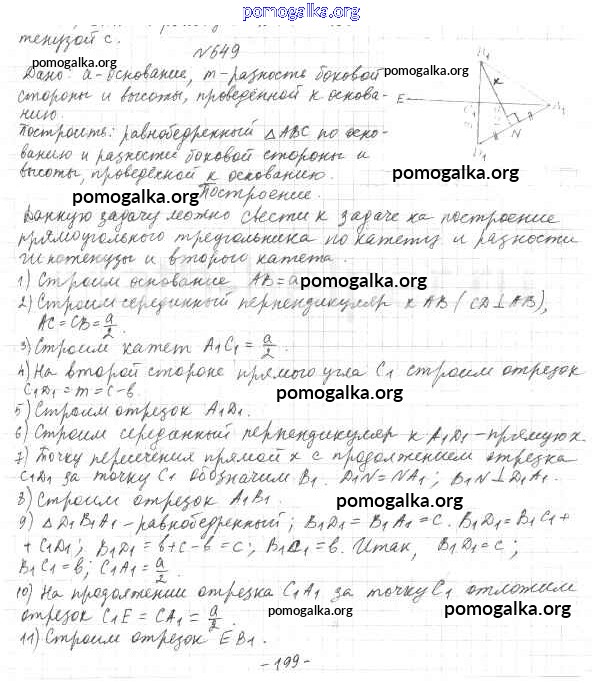 pomogalka.org
тенузой с.
N649
pomogalka.org
Дано: a - основание, m - разность боковой
стороны и высоты, проведённой к основа-
нию.
pomogalka.org
Построить: равнобедренный △ABC по осно-
ванию и разности боковой стороны и
высоты, проведённой к основанию.
B1
x
E
A1
N
D1
pomogalka.org
pomogalka.org
Построение.
Данную задачу можно свести к задаче на построение
прямоугольного треугольника по катету и разности
гипотенузы и второго катета.
1) Строим основание AB = a
pomogalka.org
2) Строим серединный перпендикуляр к AB (CD⊥AB),
AC = CB = a/2.
3) Строим катет A1C1 = a/2.
pomogalka.org
4) На второй стороне прямого угла C1 строим отрезок
C1D1 = m = c-b.
pomogalka.org
5) Строим отрезок A1D1.
6) Строим серединный перпендикуляр к A1D1 - прямую x.
7) Точку пересечения прямой x с продолжением отрезка
C1D1 за точку C1 обозначим B1. D1N = NA1; B1N⊥D1A1.
8) Строим отрезок A1B1.
pomogalka.org
9) △D1B1A1 - равнобедренный; B1D1 = B1A1 = c. B1D1 = B1C1 +
+ C1D1; B1D1 = b+c-b = c; B1C1 = b. Итак, B1D1 = c;
B1C1 = b; C1A1 = a/2.
10) На продолжении отрезка C1A1 за точку C1 отложим
отрезок C1E = CA1 = a/2.
pomogalka.org
pomogalka.org
11) Строим отрезок EB1.
- 199 -